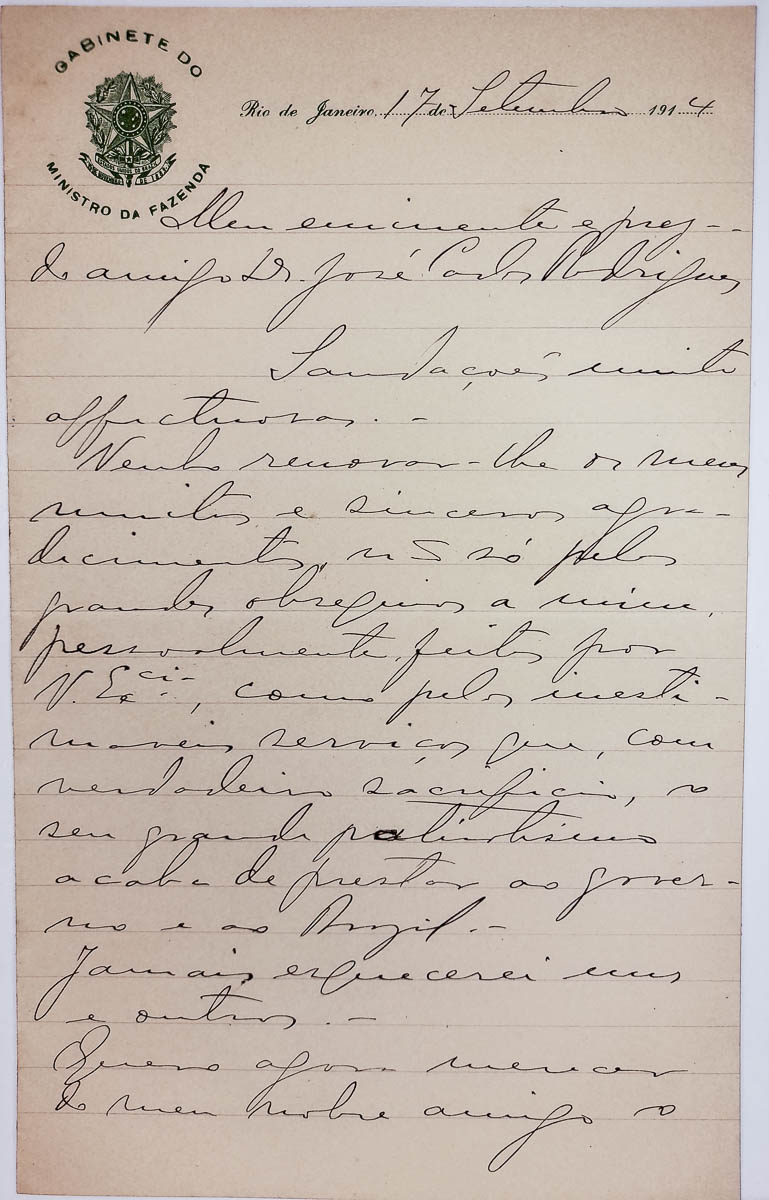 GABINETE DO
MINISTRO DA FAZENDA
Rio de Janeiro, 17 de Setembro 1914
Meu eminente e prez-
do amigo Dr. José Carlos Rodrigues
Saudações muito
affectuosas. -
Venho renovar-lhe os meus
muitos e sinceros agra-
decimentos, não só pelos
grandes obsequios a mim,
pessoalmente, feitos por
V. Excia., como pelos inesti-
maveis serviços que, com
verdadeiro sacrificio, o
seu grande patriotismo
acaba de prestar ao gover-
no e ao Brazil. -
Jamais esquecerei uns
e outros. -
Quero agora merecer
do meu nobre amigo o